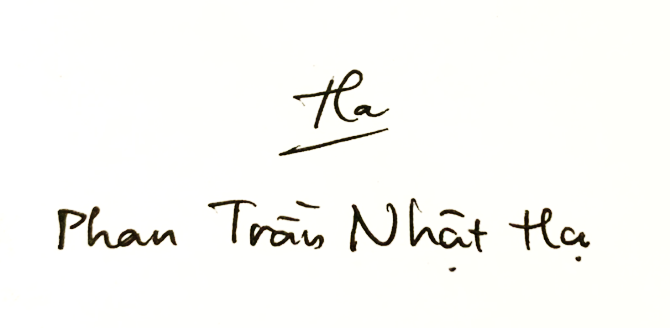 Ha
Phan Trần Nhật Hạ